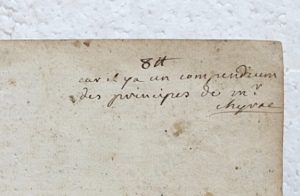 8tt
car il ya un compendium
des principes de mr
chyrac